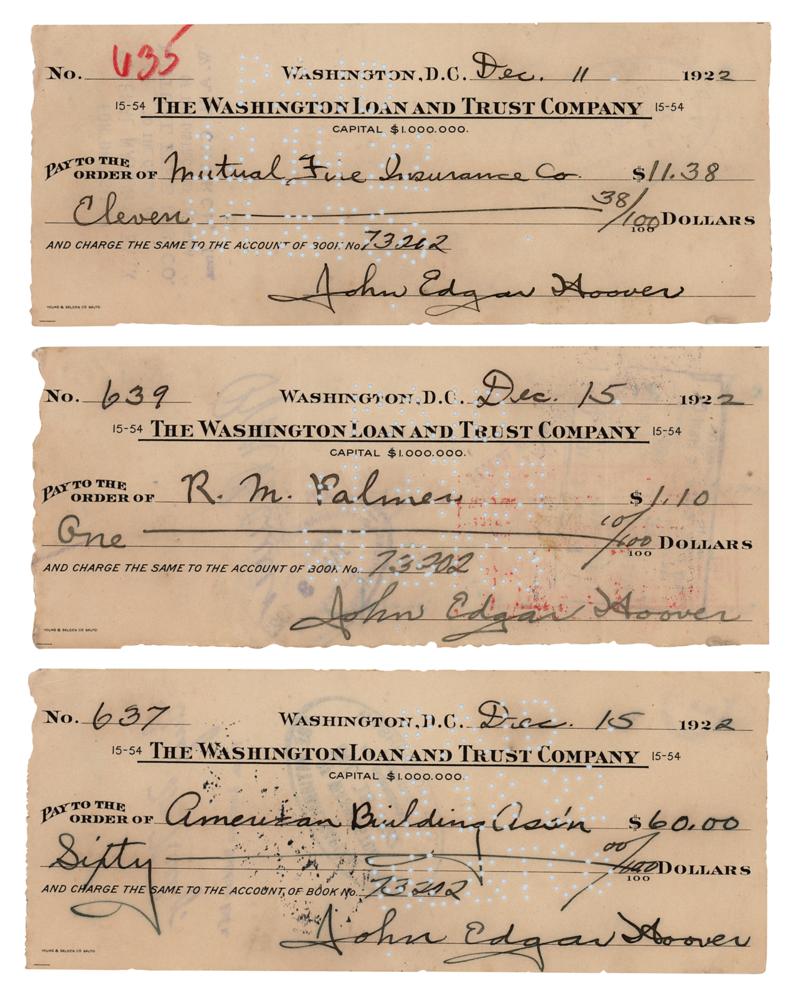 No. 635 WASHINGTON, D.C. Dec. 11 1922
15-54 THE WASHINGTON LOAN AND TRUST COMPANY 15-54
CAPITAL $1.000.000.
PAY TO THE ORDER OF Mutual Fire Insurance Co. $11.38
Eleven 38/100 100 DOLLARS
AND CHARGE THE SAME TO THE ACCOUNT OF BOOK No. 73202
John Edgar Hoover
No. 639 WASHINGTON, D.C. Dec. 15 1922
15-54 THE WASHINGTON LOAN AND TRUST COMPANY 15-54
CAPITAL $1.000.000.
PAY TO THE ORDER OF R. M. Palmer $1.10
One 10/100 100 DOLLARS
AND CHARGE THE SAME TO THE ACCOUNT OF BOOK No. 73202
John Edgar Hoover
No. 637 WASHINGTON, D.C. Dec. 15 1922
15-54 THE WASHINGTON LOAN AND TRUST COMPANY 15-54
CAPITAL $1.000.000.
PAY TO THE ORDER OF American Building Ass'n $60.00
Sixty 00/100 100 DOLLARS
AND CHARGE THE SAME TO THE ACCOUNT OF BOOK No. 73202
John Edgar Hoover